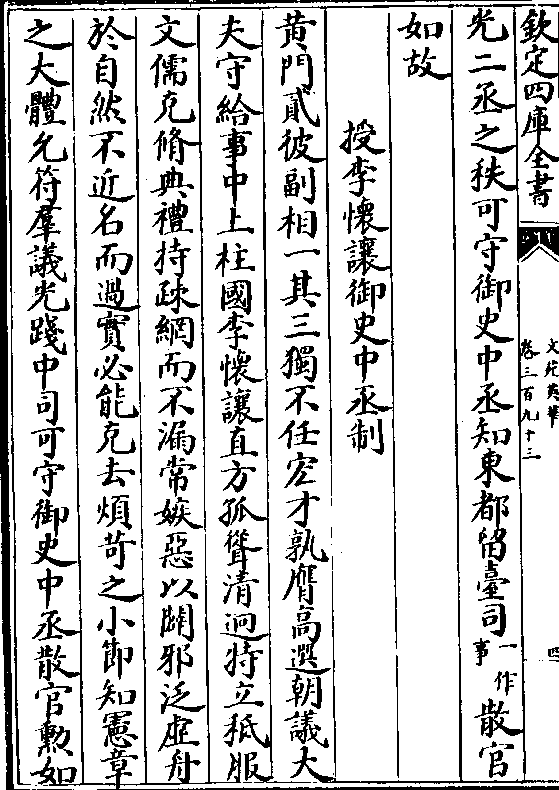 欽定四庫全書
文苑英華
卷三百九十三
四
光二丞之秩可守御史中丞知東都留臺司一作事散官
如故
授李懷讓御史中丞制
黃門貳彼副相一其三獨不任宏才孰膺高選朝議大
夫守給事中上柱國李懷讓直方孤聳清迥特立祗服
文儒克脩典禮持疎網而不漏常嫉惡以闢邪泛虛舟
於自然不近名而過實必能克去煩苛之小節知憲章
之大體允符羣議光踐中司可守御史中丞散官勲如